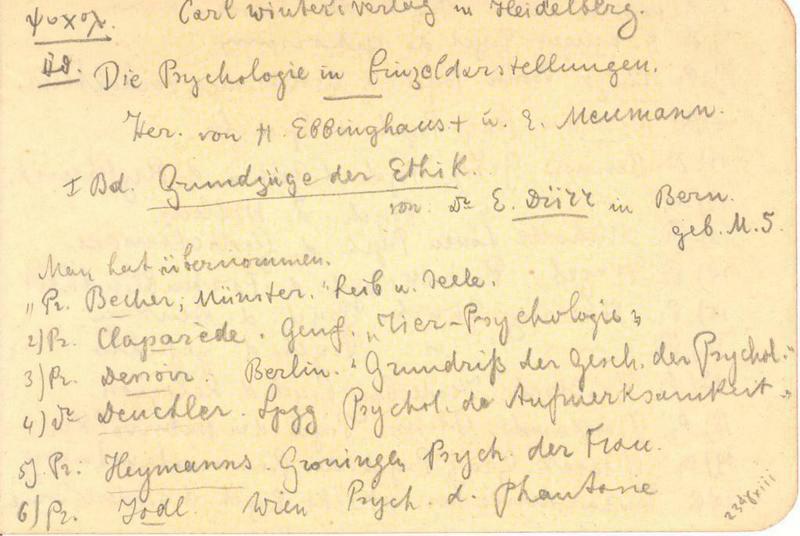 ψυχολ. Carl Winters Verlag in Heidelberg.
Die Psychologie in Einzeldarstellungen.
Her. von H. Ebbinghaus+ u. E. Meumann.
I Bd. Grundzüge der Ethik.
von Dr E. Dürr in Bern.
geb. M. 5.
Man hat übernommen.
" Pr. Becher, Münster. "Leib u. Seele.
2) Pr. Claparède. Genf. "Tier-Psychologie"
3) Pr. Dessoir. Berlin. "Grundriß der Gesch. der Psychol."
4) Dr Deuchler. Lpzg Psychol. de Aufmerksamkeit"
5) Pr. Heymanns. Groningen Psych. der Frau.
6) Pr. Jodl Wien Psych. d. Phantasie